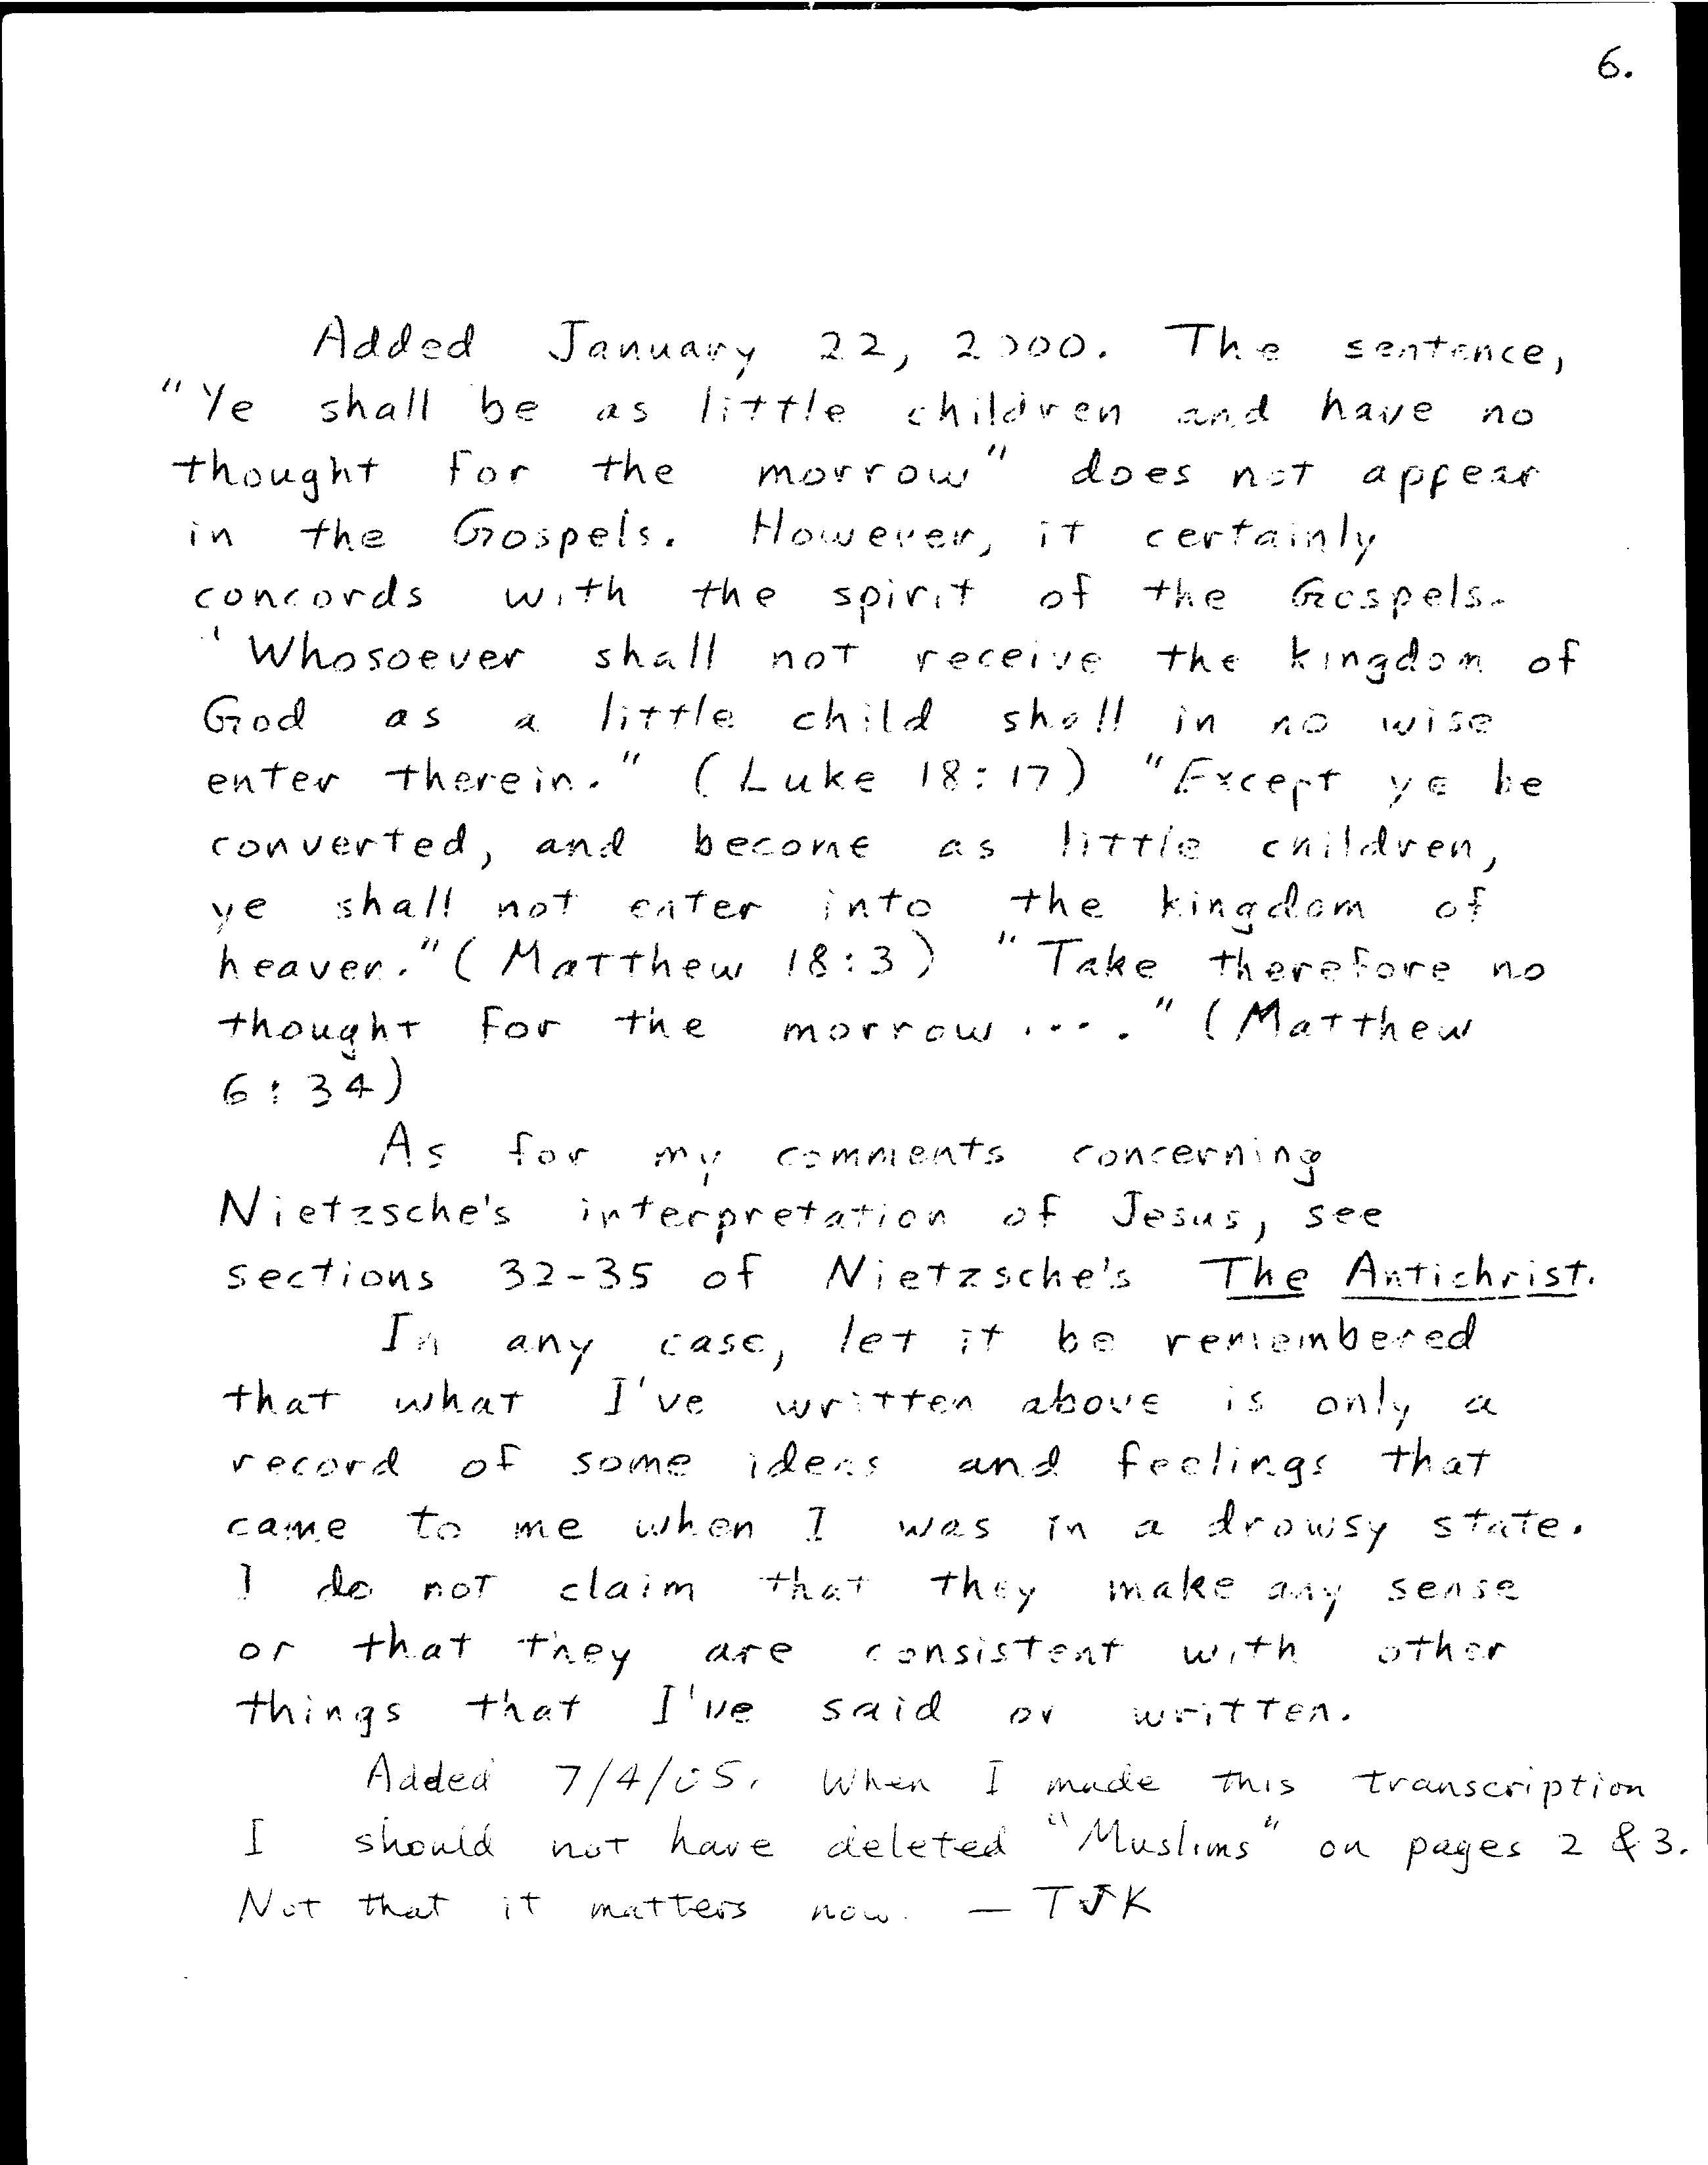 6.
Added January 22, 2000. The sentence,
"Ye shall be as little children and have no
thought for the morrow" does not appear
in the Gospels. However, it certainly
concords with the spirit of the Gospels.
"Whosoever shall not receive the kingdom of
God as a little child shall in no wise
enter therein." (Luke 18:17) "Except ye be
converted, and become as little children,
ye shall not enter into the kingdom of
heaven." (Matthew 18:3) "Take therefore no
thought for the morrow...." (Matthew
6:34)
As for my comments concerning
Nietzsche's interpretation of Jesus, see
sections 32-35 of Nietzsche's The Antichrist.
In any case, let it be remembered
that what I've written above is only a
record of some ideas and feelings that
came to me when I was in a drowsy state.
I do not claim that they make any sense
or that they are consistent with other
things that I've said or written.
Added 7/4/05. When I made this transcription
I should not have deleted "Muslims" on pages 2 & 3.
Not that it matters now. — TJK